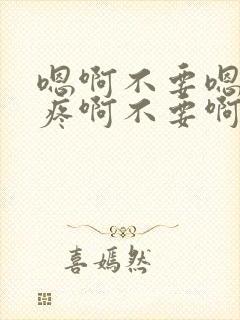 嗯啊不要嗯
疼啊不要啊
喜嫣然